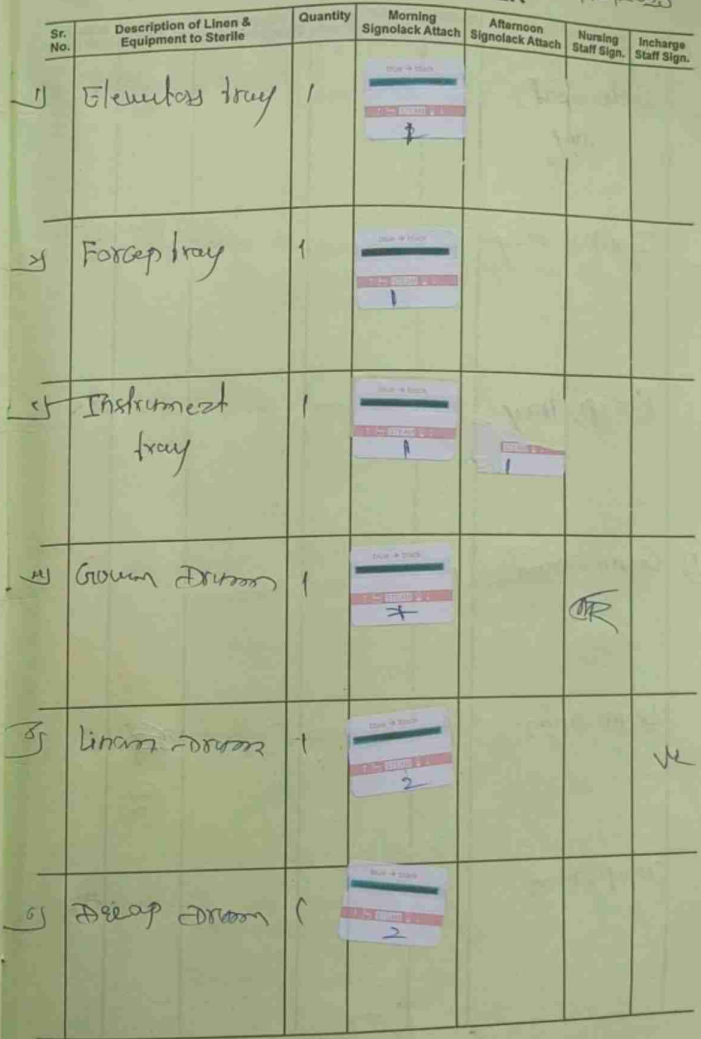 Sr. No. Description of Linen & Equipment to Sterile Quantity Morning Signolack Attach Afternoon Signolack Attach Nursing Staff Sign. Incharge Staff Sign.
1) tray 1
Blue → Black
STEAM
Forcep tray 1
Blue → Black
STEAM
1
Instrument 1
tray
Blue → Black
STEAM
1
1
Gown Drum 1
Blue → Black
STEAM
5) Linan Drum 1
Blue → Black
STEAM
2
6) Drum
Blue → Black
STEAM
2